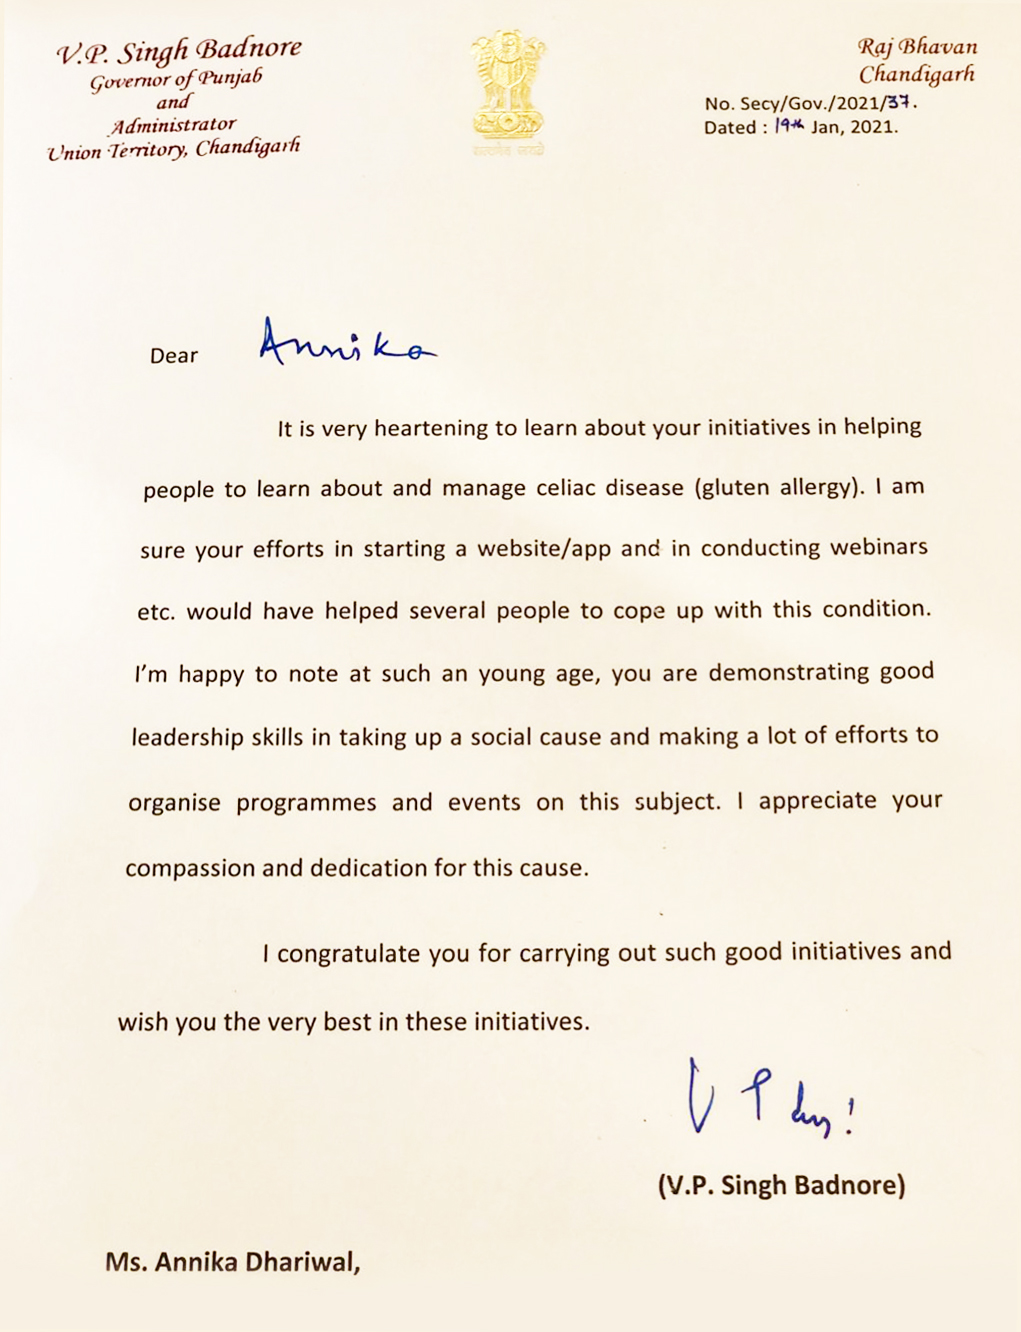 V.P. Singh Badnore
Governor of Punjab
and
Administrator
Union Territory, Chandigarh
सत्यमेव जयते
Raj Bhavan
Chandigarh
No. Secy/Gov./2021/37.
Dated : 19th Jan, 2021.
Dear Annika
It is very heartening to learn about your initiatives in helping
people to learn about and manage celiac disease (gluten allergy). I am
sure your efforts in starting a website/app and in conducting webinars
etc. would have helped several people to cope up with this condition.
I'm happy to note at such an young age, you are demonstrating good
leadership skills in taking up a social cause and making a lot of efforts to
organise programmes and events on this subject. I appreciate your
compassion and dedication for this cause.
I congratulate you for carrying out such good initiatives and
wish you the very best in these initiatives.
V P
(V.P. Singh Badnore)
Ms. Annika Dhariwal,